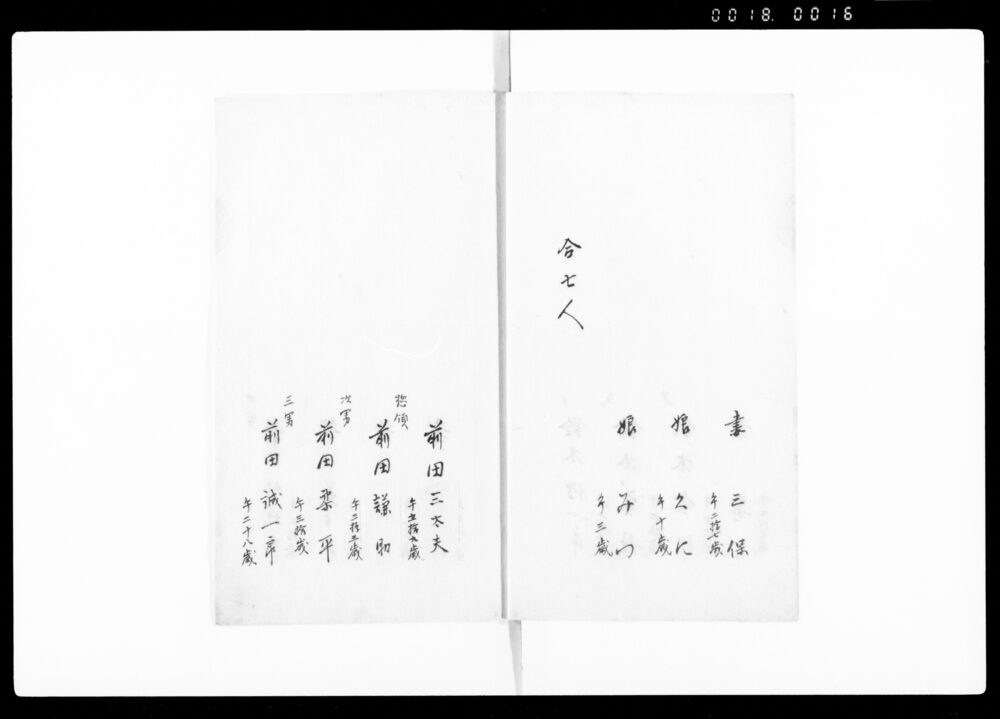 0018. 0016
妻 三保
午二拾七歳
娘 くに
午十歳
娘 みつ
午三歳
合七人
前田三太夫
午五拾九歳
惣領
前田謙助
午三拾三歳
次男
前田柔平
午三拾歳
三男
前田誠一郎
午二十八歳